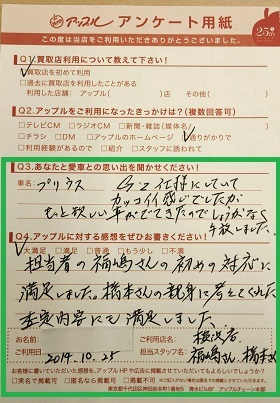 アップル アンケート用紙
25th
この度は当店をご利用いただきありがとうございました。
Q1.買取店利用について教えて下さい!
買取店を初めて利用
過去に買取店を利用したことがある
利用した店舗:アップル( )店 その他( )
Q2.アップルをご利用になったきっかけは?(複数回答可)
テレビCM ラジオCM 新聞・雑誌(媒体名 ) 通りがかりで
チラシ DM アップルのホームページ
利用経験があるので 紹介 スタッフに誘われて
Q3.あなたと愛車との思い出を聞かせください!
車名:プリウス
カッコイイ感じでしたが
もっと欲しい車ができたのでしょうがなく
手放しました。
Q4.アップルに対する感想をぜひお書きください!
大満足 満足 普通 もう少し 不満
担当者の福嶋さんの初めの対応に
満足しました。橋本さんの親身に考えてくれた
査定内容にも満足しました。
お名前:
ご利用店名:横浜店
ご利用日:2014.10.25
担当スタッフ名:福嶋さん 橋本さん
お書きいただいた感想を、アップルHPや広告に掲載させていただいてもよろしいでしょうか?
実名で掲載可 匿名なら掲載可 掲載不可